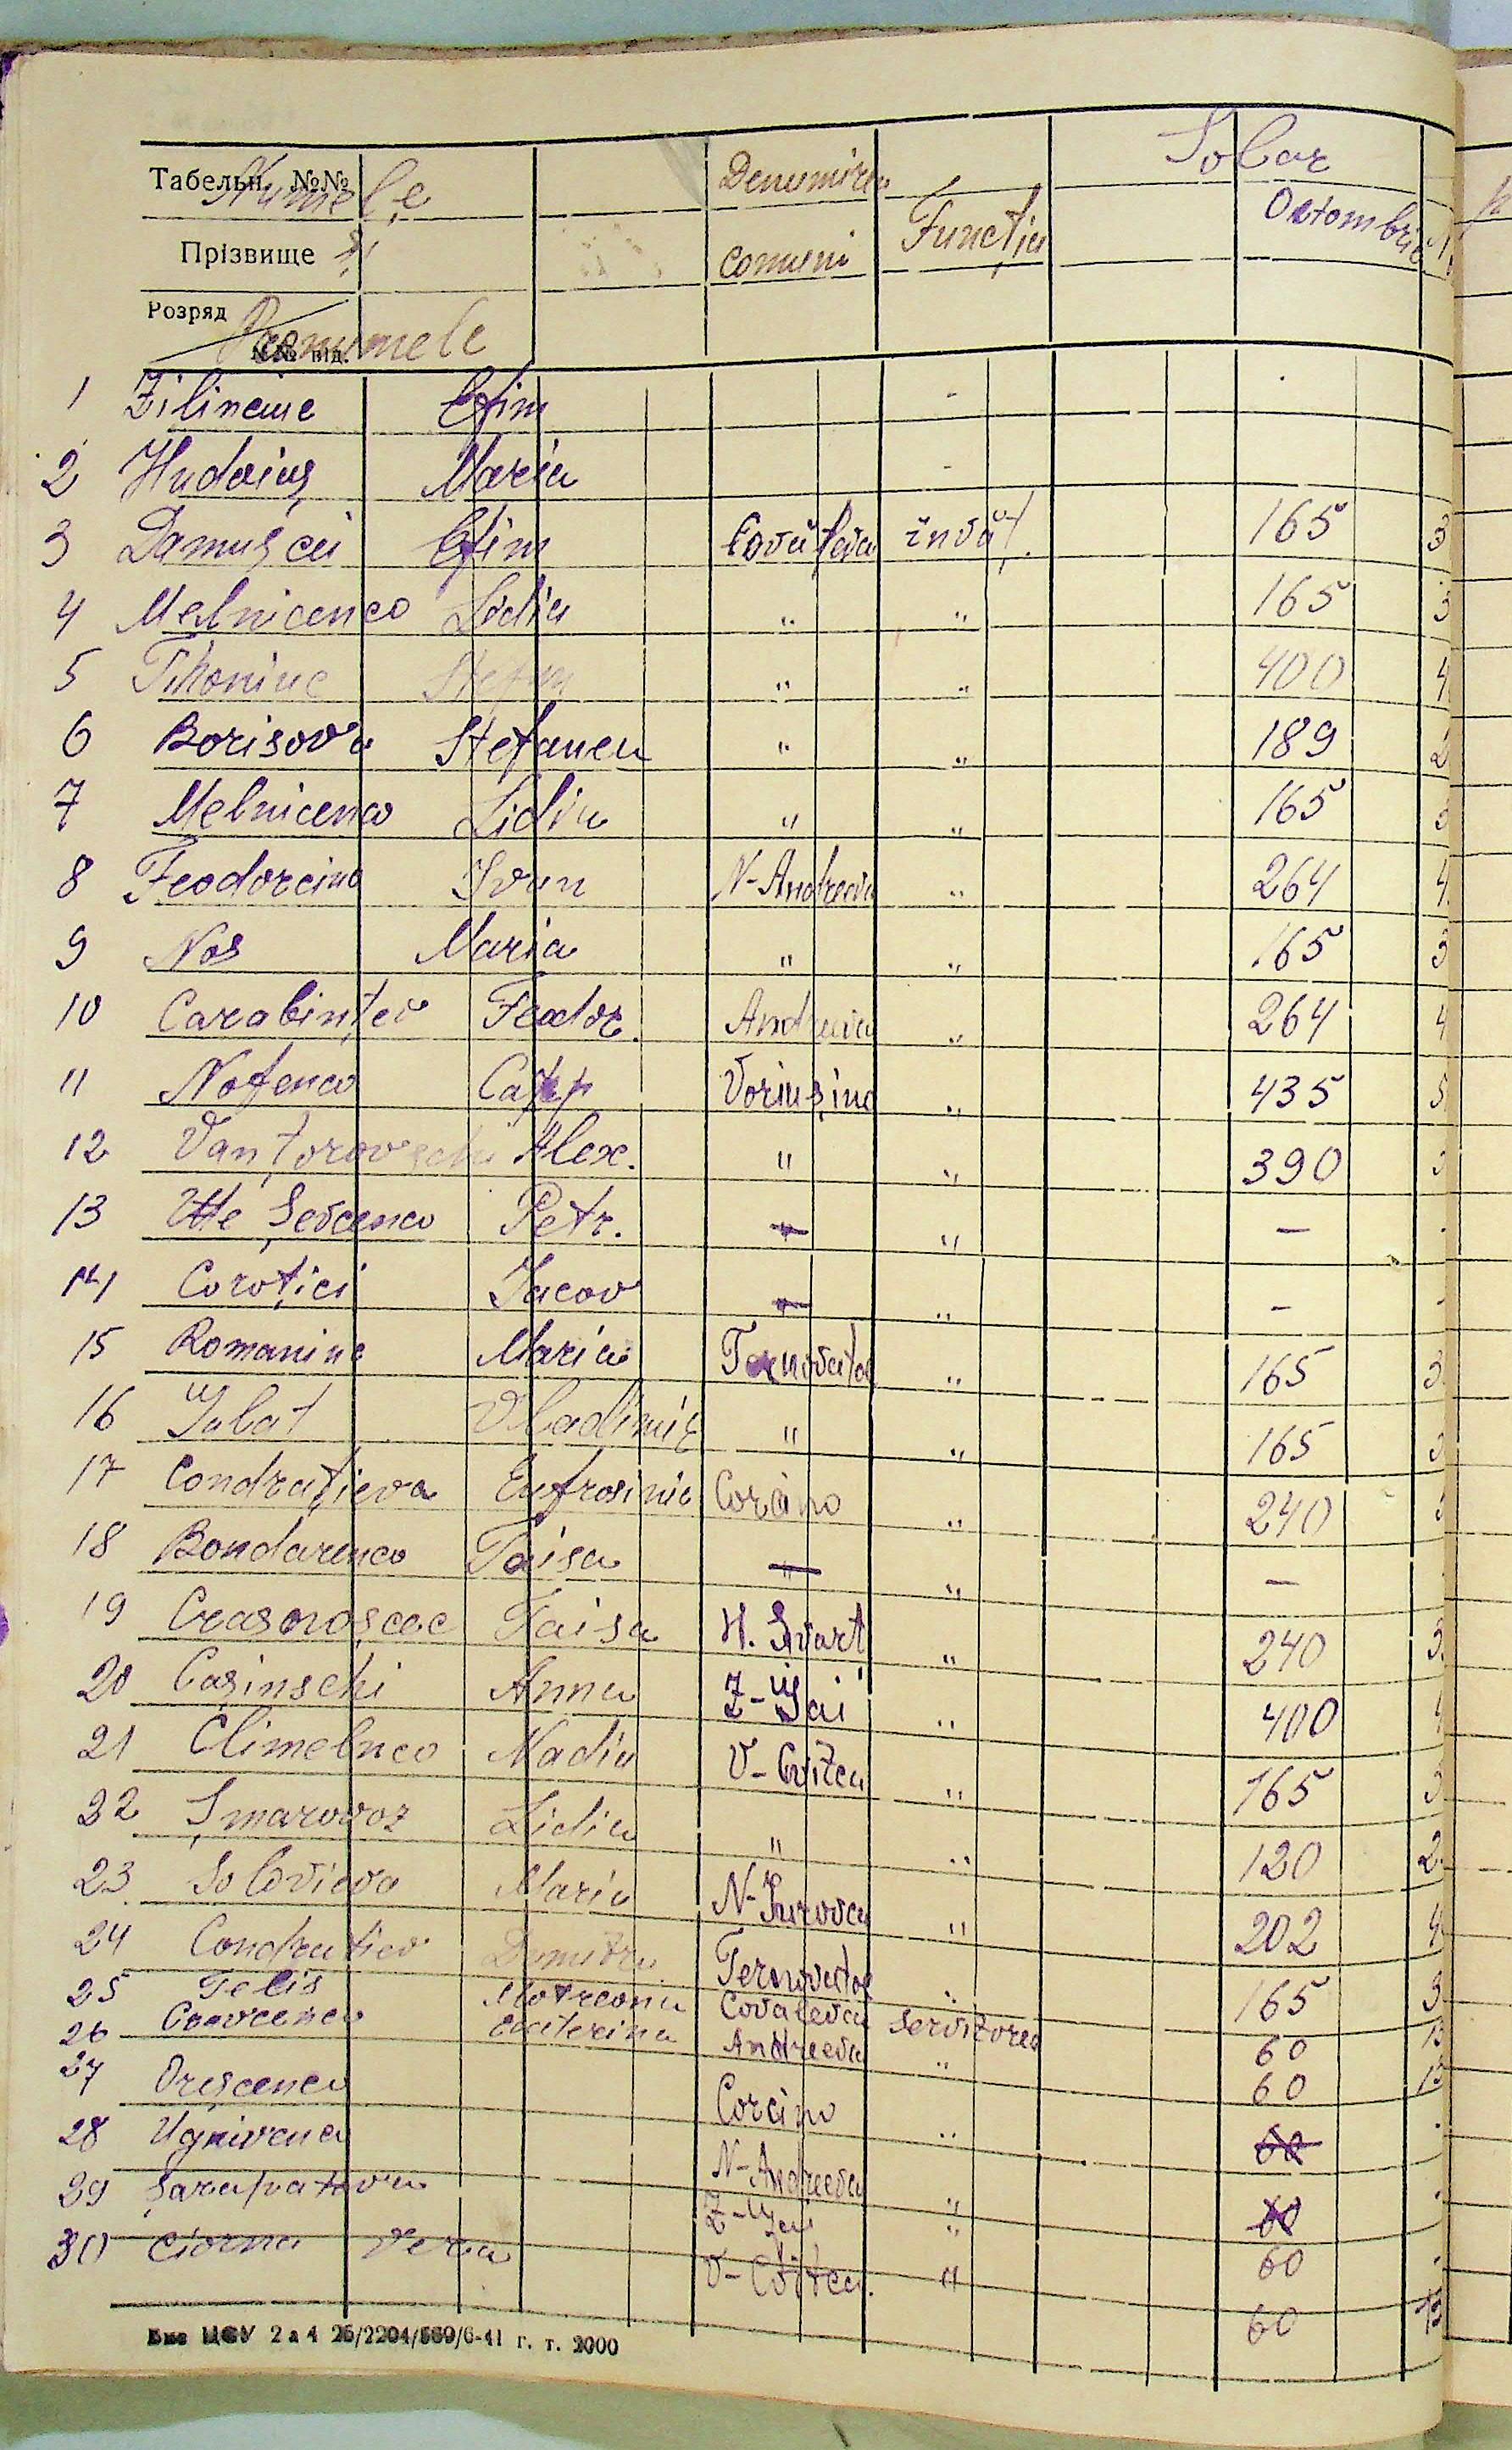 Табельн. №№ Numele Denumirea Solar
Прізвище și comunei Funcția Octombrie
Розряд Pronumele
№№ від.
1 Zilineuc Efim -
2 Hudaiuș Maria -
3 Damușcii Efim Covaleva învăț. 165 3
4 Melnicenco Lidia " " 165 3
5 Tihoniuc Ștefan " " 400 4
6 Borisova Stefanea " " 189 2
7 Melnicenco Lidia " " 165 3
8 Feodorcinco Ivan N-Andreeva " 264 4
9 Nos Maria " " 165 3
10 Carabințev Feodor. Andreeva " 264 4
11 Nofenco Carp Voriușino " 435 5
12 Vanțorovschi Alex. " " 390 3
13 Șevcenco Petr. " " —
14 Corotici Iacov " " -
15 Romaniuc Maria Ternovatoe " 165 3
16 Iubat Vladimir " " 165 3
17 Condrațieva Eufrosinia Corcino " 240
18 Bondarenco Taisa " " —
19 Crasnoșcoc Taisa H. Svart " 240 3
20 Casinschi Anna Z-Gai " 400 4
21 Climelnco Nadia V-Cvitca " 165 3
22 Șmarovoz Lidia " " 120 2
23 Solovieva Maria N-Iurovca " 202 4
24 Condratiev Dumitru Ternovatoe " 165 3
25 Telis Motreona Covaleva Servitorea 60 13
26 Cravcenco Ecaterina Andreeva " 60 13
27 Oreșcenco Corcino " 60
28 Ugnivenco N-Andreeva " 60
29 Șarapatova Z-Gai " 60
30 Ciorna Vera V-Cvitca. " 60 13
Вис ЦСУ 2 а 4 25/2204/559/6-41 г. т. 2000